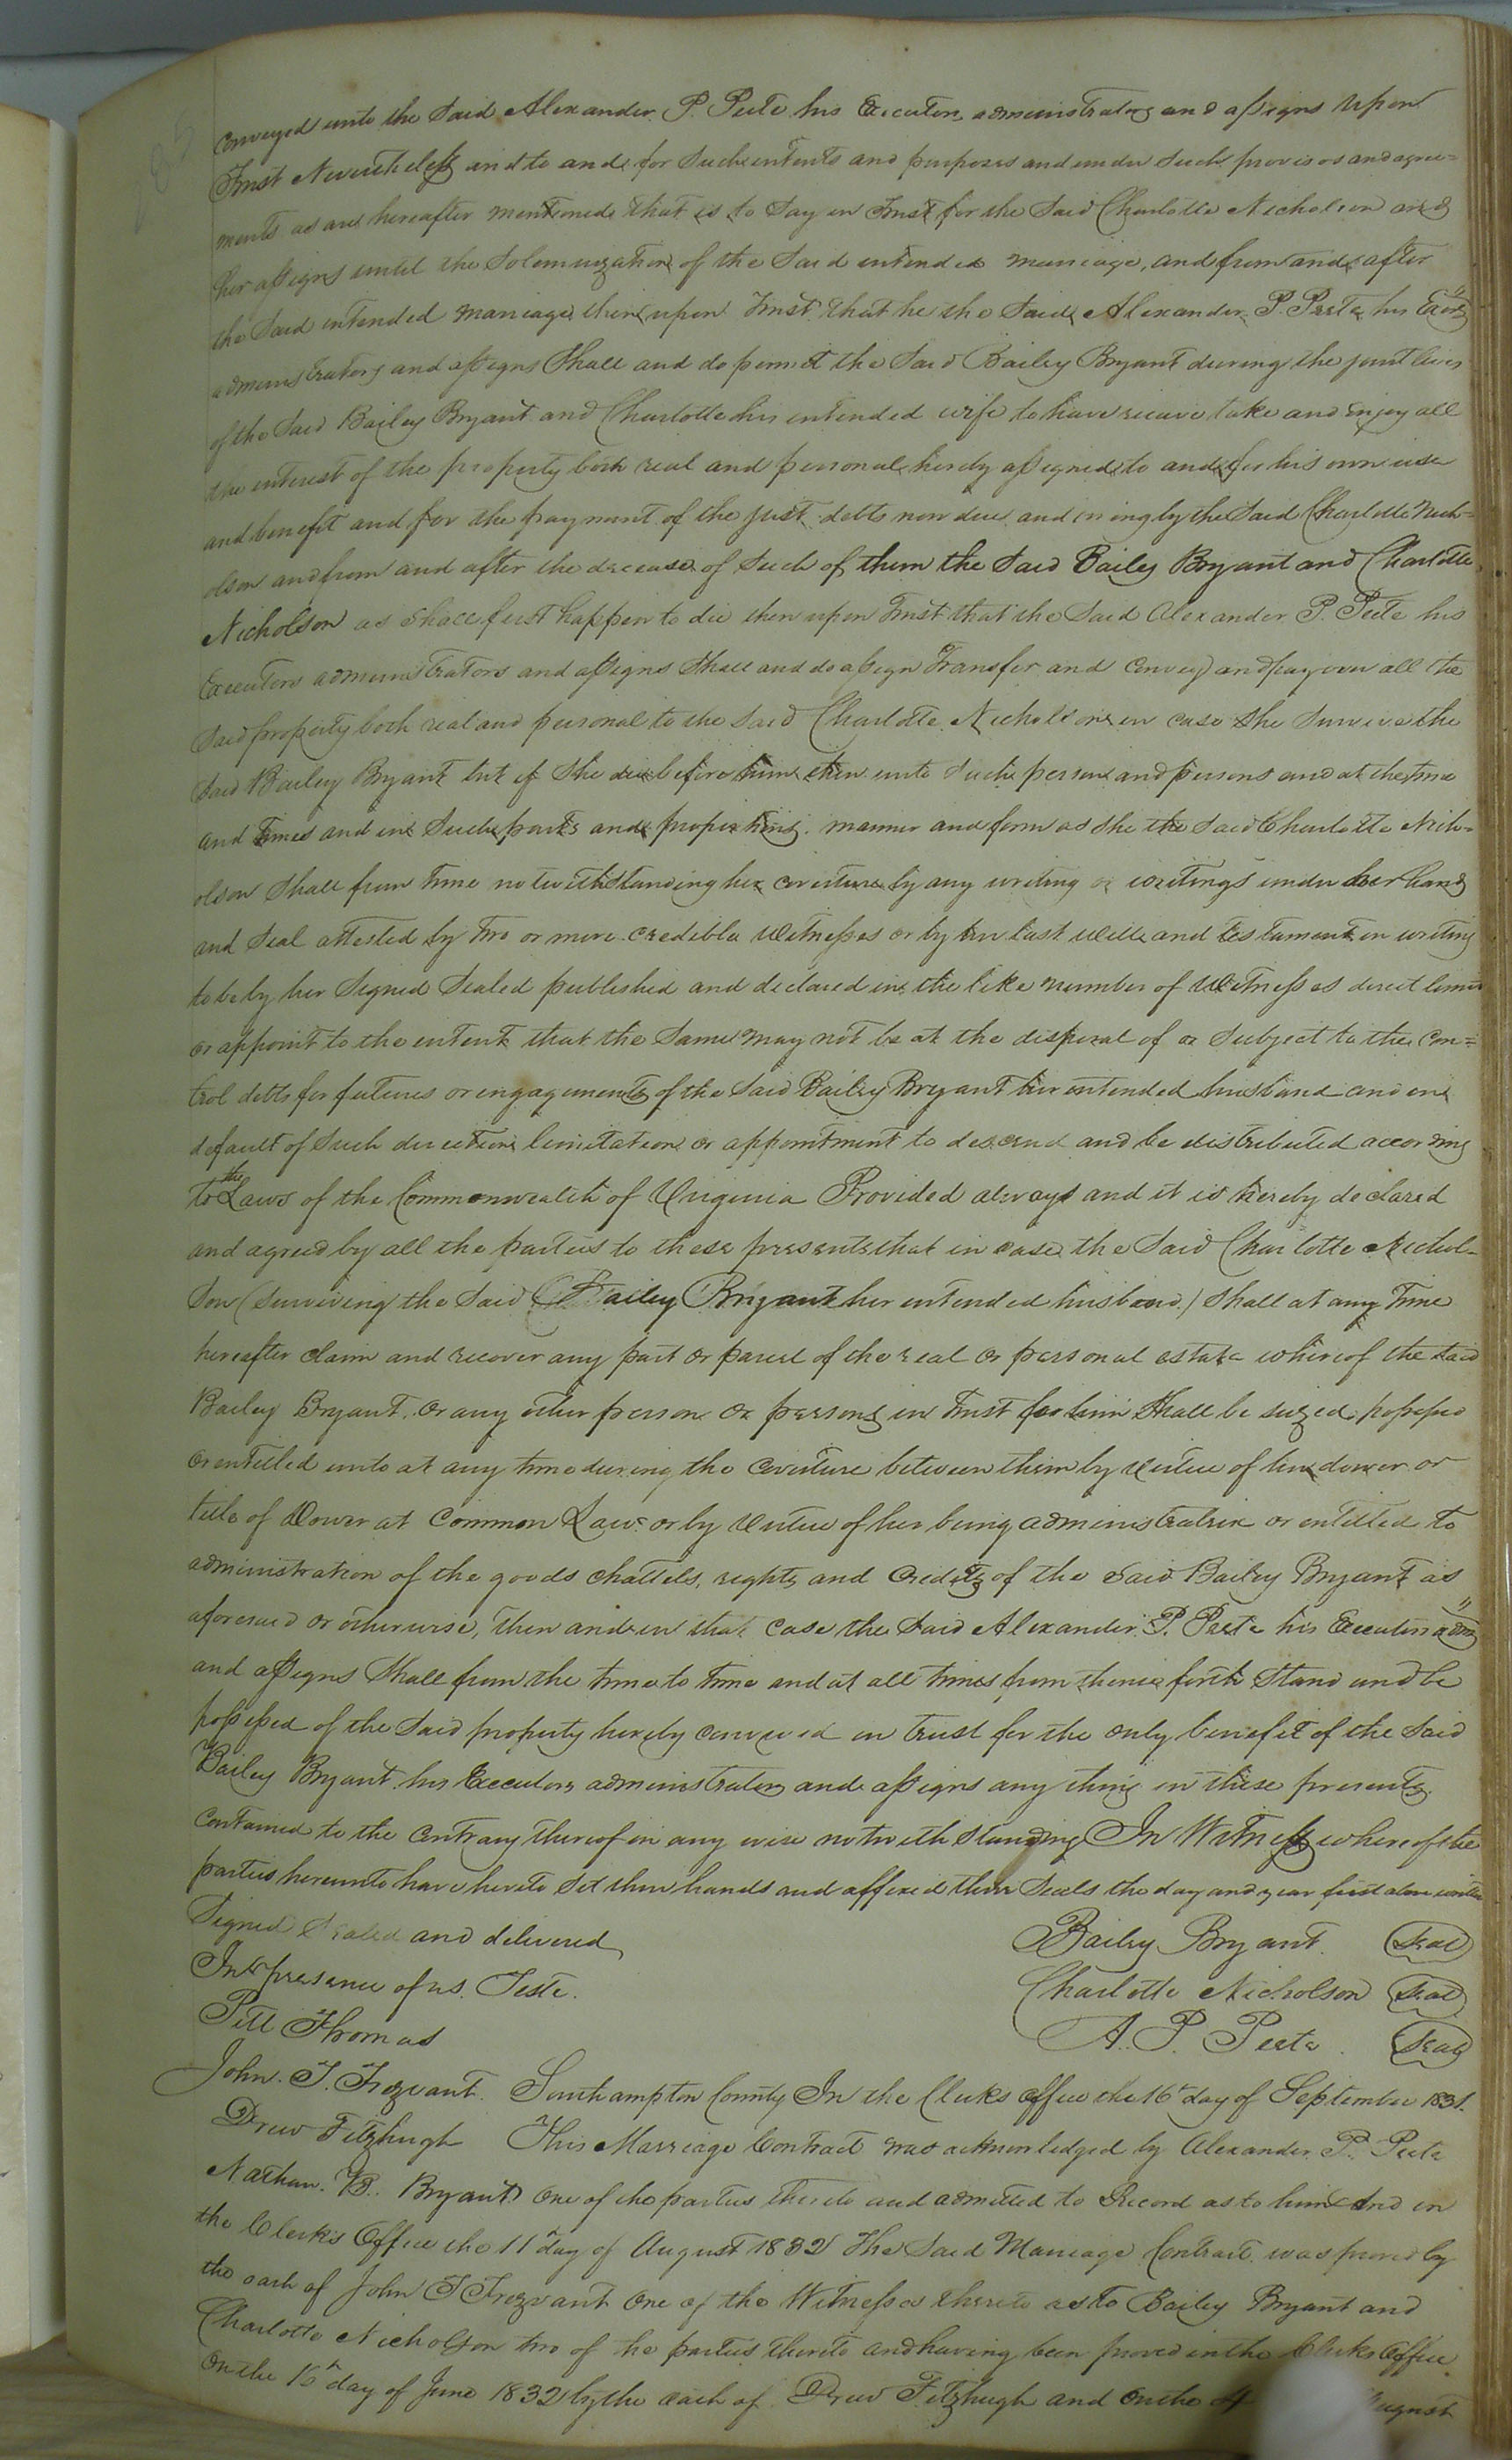 conveyed unto the Said Alexander P. Peete his Executors administrators and assigns upon
Trust Nevertheless and to and for Such intents and purposes and under Such provisos and agree=
ments as are hereafter mentioned that is to Say in Trust for the Said Charlotte Nicholson and
her assigns until the Solemnization of the Said intended marriage, and from and after
the Said intended marriage then upon Trust that he the Said Alexander P. Peete his Exors
administrators and assigns Shall and do permit the Said Bailey Bryant during the joint lives
of the Said Bailey Bryant and Charlotte his intended wife to have receive take and enjoy all
the interest of the property both real and personal hereby assigned to and for his own use
and benefit and for the payment of the just debts now due and owing by the Said Charlotte Nich=
olson and from and after the decease of Such of them the Said Bailey Bryant and Charlotte
Nicholson as Shall first happen to die then upon Trust that the Said Alexander P. Peete his
Executors administrators and assigns Shall and do assign Transfer and Convey and pay over all the
Said property both real and personal to the Said Charlotte Nicholson in case She Survive the
Said Bailey Bryant but if She die before him then unto Such person and persons and at the time
and times and in Such parts and proportions manner and form as She the Said Charlotte Nich=
olson Shall from time notwithstanding her coverture by any writing or writings under her hand
and Seal attested by two or more credible Witnesses or by her last Will and testament in writing
to be by her Signed Sealed published and declared in the like number of Witnesses direct limit
or appoint to the intent that the Same may not be at the disposal of or Subject to the Con=
trol debts forfeitures or engagements of the Said Bailey Bryant her intended husband and in
default of Such direction limitation or appointment to descend and be distributed according
to the Laws of the Commonwealth of Virginia Provided always and it is hereby declared
and agreed by all the parties to these presents that in case the Said Charlotte Nichol-
Son (Surviving the Said Bailey Bryant her intended husband) Shall at any Time
hereafter claim and recover any part or parcel of the real or personal estate whereof the Said
Bailey Bryant. or any other person or persons in Trust for him Shall be seized possessed
or entitled unto at any time during the Coverture between them by virtue of her dower or
title of Dower at Common Law or by Virtue of her being administratrix or entitled to
administration of the goods chattels, rights and Credits of the Said Bailey Bryant as
aforesaid or otherwise, then and in that Case the Said Alexander P. Peete his Executors adms
and assigns Shall from the time to time and at all times from thence forth Stand and be
possessed of the Said property hereby conveyed in trust for the only benefit of the Said
Bailey Bryant his Executors administrators and assigns any thing in these presents
Contained to the Contrary thereof in any wise notwithstanding In Witness whereof the
parties hereunto have hereto Set their hands and affixed their Seals the day and year first above written
Signed Sealed and delivered
In presence of us. Teste.
Bailey Bryant. Seal
Charlotte Nicholson Seal
A. P. Peete. Seal
Pitt Thomas
John. T. Trezvant.
Drew Fitzhugh
Nathan. B. Bryant
Southampton County In the Clerks office the 16th day of September 1831.
This Marriage Contract was acknowledged by Alexander. P. Peete
One of the parties thereto and admitted to Record as to him And in
the Clerk's Office the 11th day of August 1832 The Said Marriage Contract was proved by
the oath of John T Trezvant One of the Witnesses thereto as to Bailey Bryant and
Charlotte Nicholson two of he parties thereto and having been proved in the Clerks Office
On the 16th day of June 1832 by the oath of Drew Fitzhugh and On the 4 August